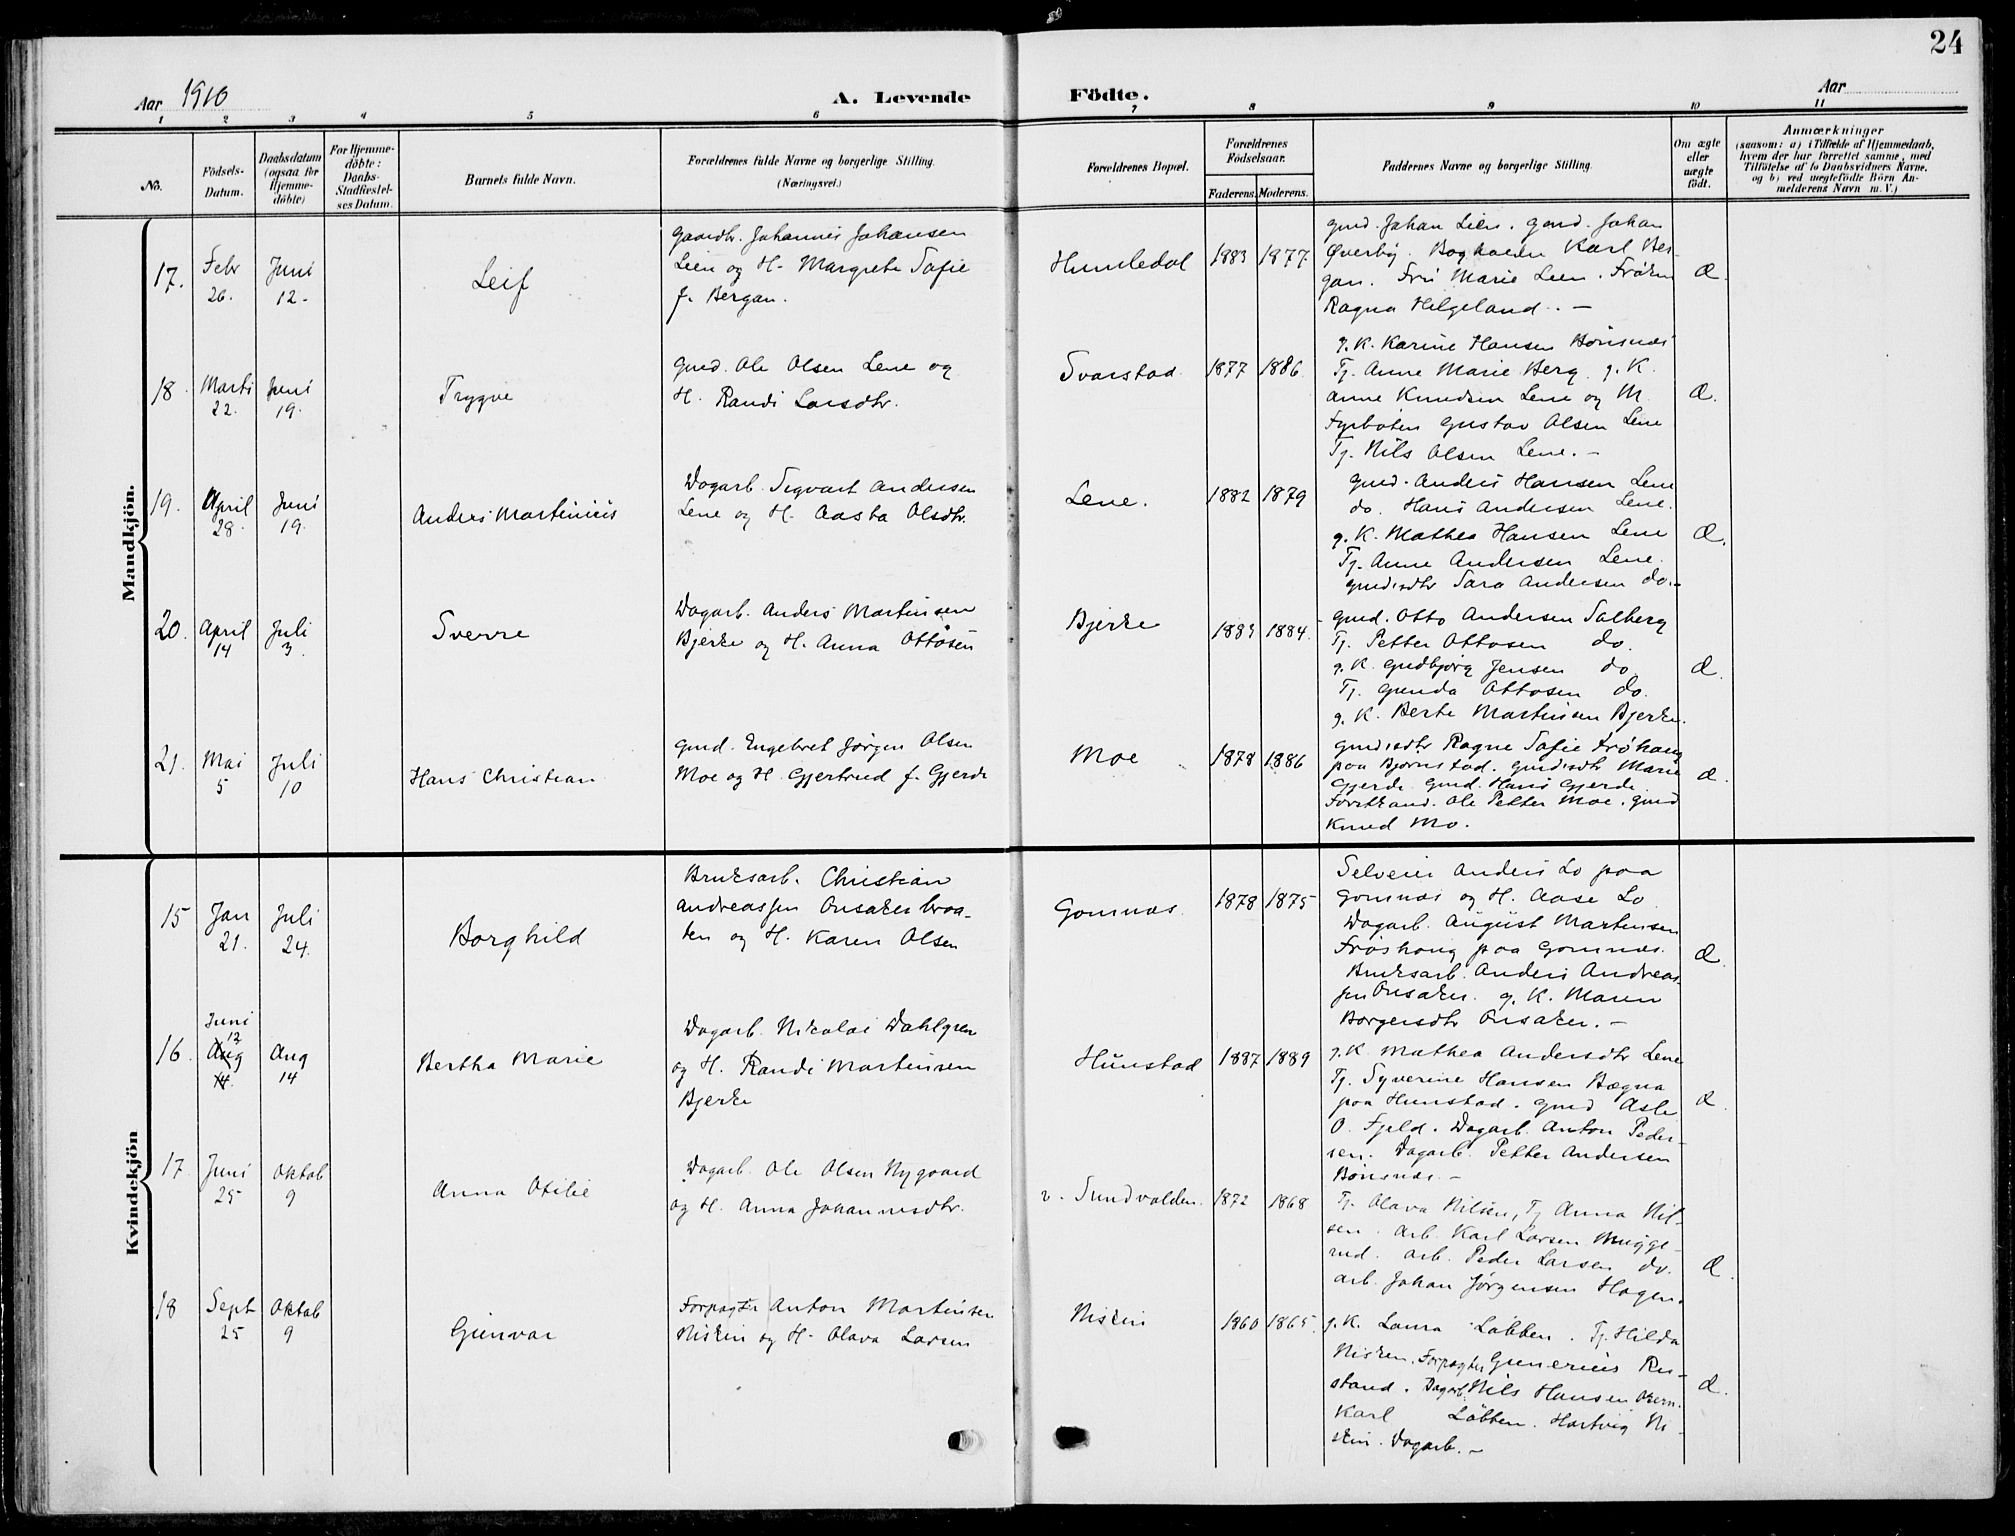 24
Aar 1910
A. Levende Födte.
Aar
1 2 3 4 5 6 7 8 9 10 11
No.
Födsels-
Datum.
Daabsdatum
(ogsaa for
Hjemme-
döbte)
For Hjemme-
döbte:
Daabs-
Stadfæstel-
ses Datum.
Barnets fulde Navn.
Forældrenes fulde Navne og borgerlige Stilling.
(Næringsvei.)
Forældrenes Bopæl.
Forældrenes
Födselsaar.
Faderens. Moderens.
Faddernes Navne og borgerlige Stilling.
Om ægte
eller
uægte
födt.
Anmærkninger
(saasom: a) i Tilfælde af Hjemmedaab,
hvem der har forrettet samme, med
Tilföielse af to Daabsvidners Navne,
og b) ved uægtefödte Börn An-
melderens Navn m. V.)
Mandkjön.
17.
Febr
26.
Juni
12.
Leif
Gaardbr. Johannes Johansen
Lien og H. Margrethe Sofie
f. Bergan.
Humledal
1883 1877
Gmd. Johan Lien. Gmd. Johan
Øverby. Bogholder Karl Ber-
gan. Fru Marie Lien. Frøken
Ragna Helgeland. -
Æ.
18.
Marts
22.
Juni
19.
Trygve
Gmd. Ole Olsen Lene og
H. Randi Larsdtr.
Svarstad
1877 1886
g. K. Karine Hansen Bønsnæs
Tj. Anne Marie Berg. g. K.
Anne Knudsen Lene og M.
Fyrbøter Gustav Olsen Lene
Tj. Nils Olsen Lene. -
Æ.
19.
April
28.
Juni
19.
Anders Martinius
Dagarb. Sigvart Andersen
Lene og H. Aasta Olsdtr.
Lene.
1882 1879
Gmd. Anders Hansen Lene
do. Hans Andersen Lene.
g. K. Mathea Hansen Lene
Tj. Anne Andersen Lene.
Gmdsdtr Sara Andersen do. -
Æ.
20.
April
14
Juli
3.
Sverre
Dagarb. Anders Martinsen
Bjerke og H. Anna Ottosen
Bjerke
1883 1884.
Gmd. Otto Andersen Solberg
Tj. Petter Ottosen do.
g. K. Gudbjørg Jensen do
Tj. Gunda Ottosen do.
g. K. Berte Martinsen Bjerke.
Æ.
21.
Mai
5
Juli
10
Hans Christian
Gmd. Engebret Jørgen Olsen
Moe og H. Gjertrud f. Gjerde
Moe
1878 1886
Gmdsdtr Ragne Sofie Frøhaug
paa Bjørnstad. Gmdsdtr Marie
Gjerde. Gmd. Hans Gjerde
Forstkand. Ole Petter Moe. Gmd
Knud Mo.
Æ.
Kvindekjön
15
Jan
21.
Juli
24.
Borghild
Bruksarb. Christian
Andreassen Onsakerbraa-
ten og H. Karen Olsen
Gomnæs.
1878 1875
Selveier Anders Lo paa
Gomnæs og H. Aase Lo
Dagarb. August Martinsen
Frøshaug paa Gomnæs.
Bruksarb. Anders Andreas-
sen Onsaker. g. K. Maren
Borgersdtr Onsaker. -
Æ.
16.
Juni
12
Aug
14.
Aug
14
Bertha Marie
Dagarb. Nikolai Dahlgren
og H. Randi Martinsen
Bjerke
Hunstad
1887 1889
g. K. Mathea Andersdtr Lene
Tj. Syverine Hansen Bægna
paa Hunstad. Gmd Asle
O. Fjeld. Dagarb. Anton Peder-
sen. Dagarb. Petter Andersen
Bønsnæs. -
Æ.
17.
Juni
25
Oktob
9
Anna Otilie
Dagarb. Ole Olsen Nygaard
og H. Anna Johannesdtr.
v. Sundvolden.
1872 1868
Tj. Olava Nilsen, Tj Anna Nil-
sen. Arb. Karl Larsen Mugge-
rud. Arb. Peder Larsen do.
Arb. Johan Jørgensen Hagen.
Æ.
18
Sept
25
Oktob
9
Gunvor
Forpagter Anton Martinsen
Nisken og H. Olava Larsen
Nisken
1860 1865.
g. K. Laura Løbben. Tj. Hilda
Nisken. Forpagter Gunerius Ru-
stand. Dagarb. Nils Hansen
Karl Løbben. Hartvig Ni-
sken. Dagarb. -
Æ.